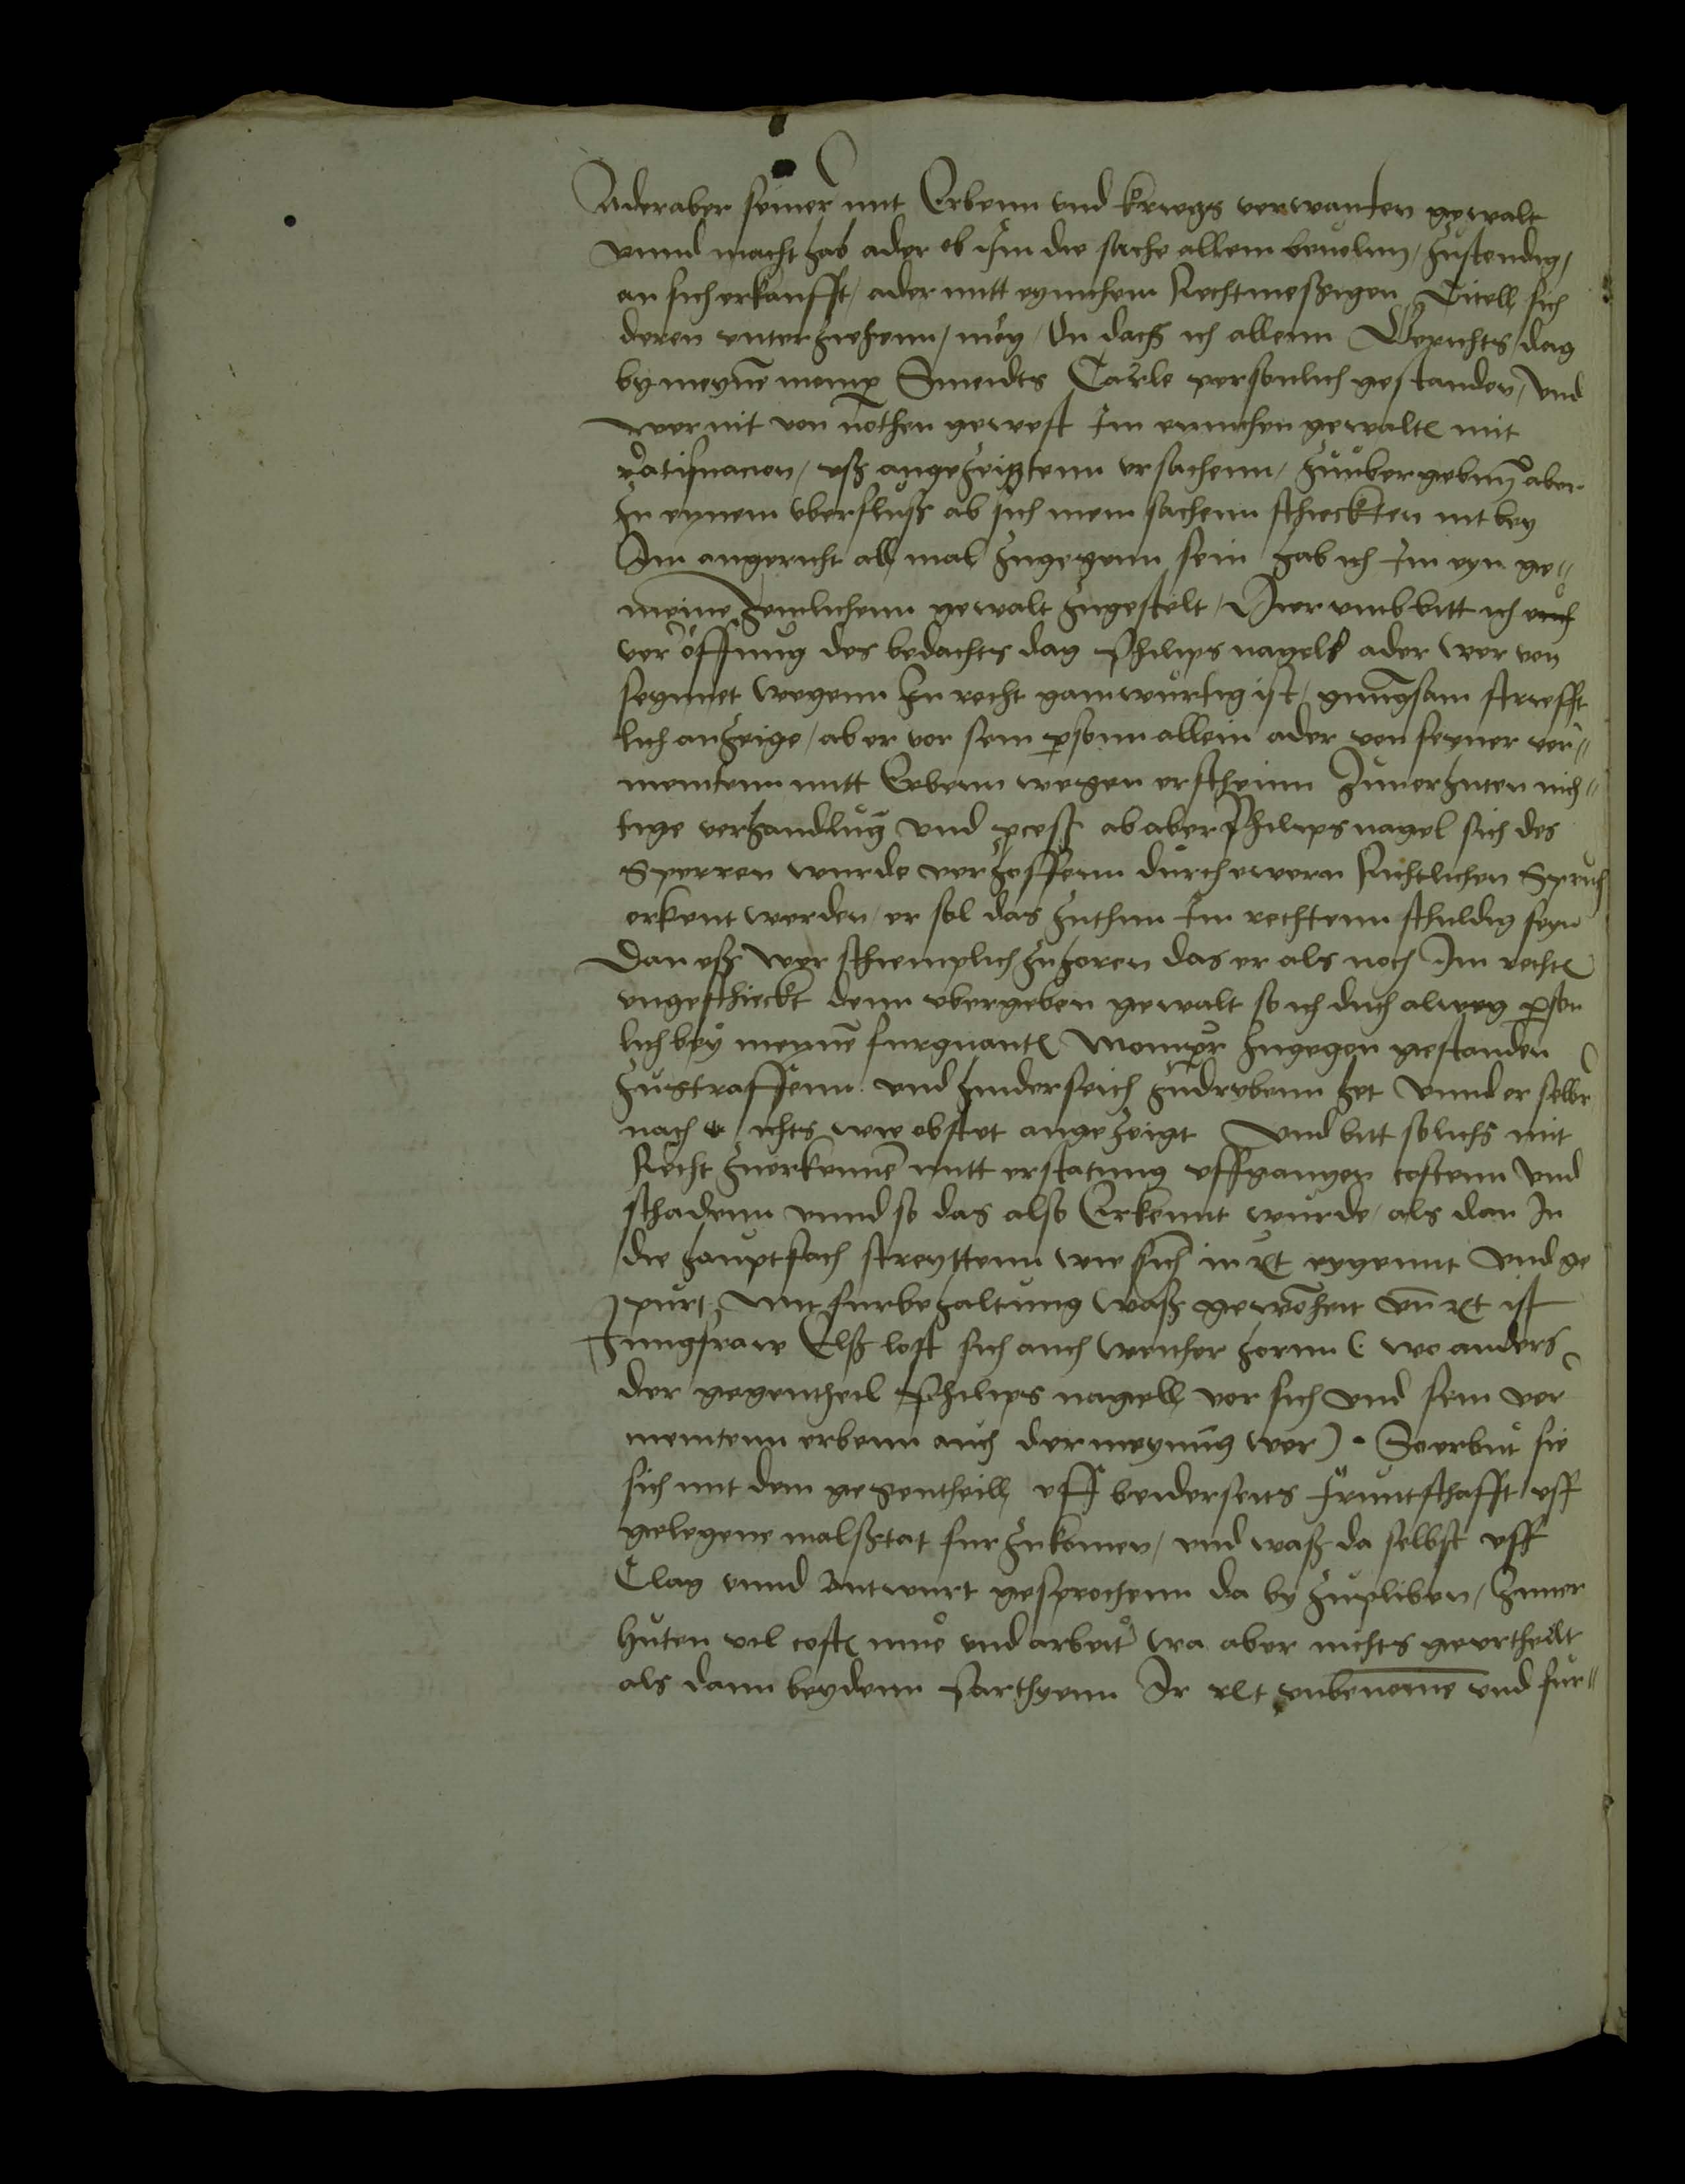 Ader aber seiner mit Erbenn vnd kriegs verwanten gewalt
vnnd macht hab ader ob ihm die sache allein beuelung / zustendig /
an sich erkaufft / ader mitt eynichem Rechtmeßigen Titell sich
deren vnterziehenn / möy / In dach ich allenn Gerichts dag
by meyne momp Smeidts Carle personlich gestanden / vnd
wer nit von nothen gewest Im ennichen gewalt mit
ratificacion / vß angezeigtenn vrsachenn / zuubergebung aber
zu eynem vberfluß ab sich mein sachenn schickten nit bey
Im angericht all mal zugegenn sein hab ich Im eyn ge„
meine zemlichenn gewalt zugestelt / Hier vmb bitt ich
veroffnug des bedachts dag Philips nagels ader wer von
seynnet wegenn zu recht gamwurtig ist / gnugsam strefft
lich anzeige / ab er vor sein psonn allein ader von seyner ver„
meintenn mitt Erbenn wegen erscheinn zuuerhuten nich„
tige verhandlug vnd pcess ab aber Philips nagel sich des
Sperren wurde verhoffenn durch ewern Richtlichen Spruch
erkent werden / er sol das zuthun Im rechtenn schuldig seyn
Dan eß wer schimplich zuhoren das er als noch Im recht
vngeschickt denn vbergeben gewalt so ich duch alweg pson
lich bey meyne furgnant Mompar zugegen gestanden
zustraffenn vnd hinderseich zudrybenn het vnnd er selbr
nach ichts wie obstet angezeigt vnd bitt solichs mit
Recht zuerkenne mitt erstatung vffgangen costenn vnd
schadenn vnnd so das also Erkennt wurde / als dan In
die hauptsach streyttenn wie sich in Rt eygennt vnd ge
purt, Mit furbehaltung waß gewoheit vn Rt ist
Jungfraw Elß lost sich auch weither horenn ( wo anders
der gegentheil Philips nagell vor sich vnd sein ver
meintenn erbenn auch der meynug wer ) . So erbut sie
sich mit dem gegentheill vff beiderseits fruntschafft vff
gelegene malßtat fur zukomen / vnd waß da selbst vff
Clag vnnd Antwurt gesprochenn da by zupliben / zuuer
huten vil cost mue vnd arbeit wa aber nichts geurtheilt
als dann beydenn Parthyenn Ir rLt vnbenome vnd fur„